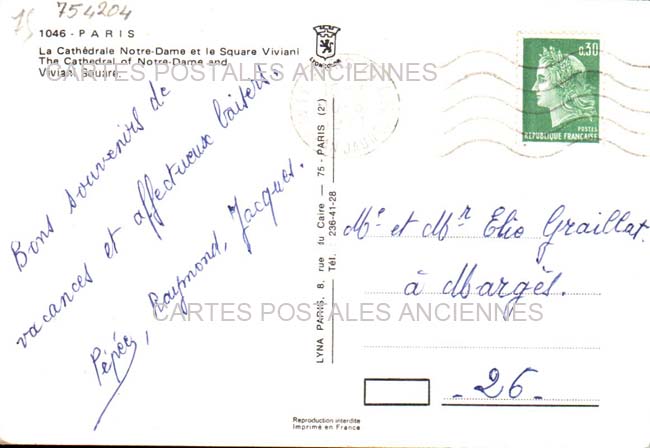 75 754204
1046 - PARIS
La Cathédrale Notre-Dame et le Square Viviani
The Cathedral of Notre-Dame and
Vivian Square.
LEONCOLOR
0,30
POSTES
REPUBLIQUE FRANÇAISE
CARTES POSTALES ANCIENNES
Bons souvenirs de
vacances et affectueux baisers.
Pépée, Raymond, Jacques.
LYNA PARIS, 8, rue du Caire — 75 - PARIS (2e)
Tél. 236-41-28
Me et Mr Elie Graillat.
à Margès.
CARTES POSTALES ANCIENNES
- 26 -
Reproduction interdite
Imprimé en France